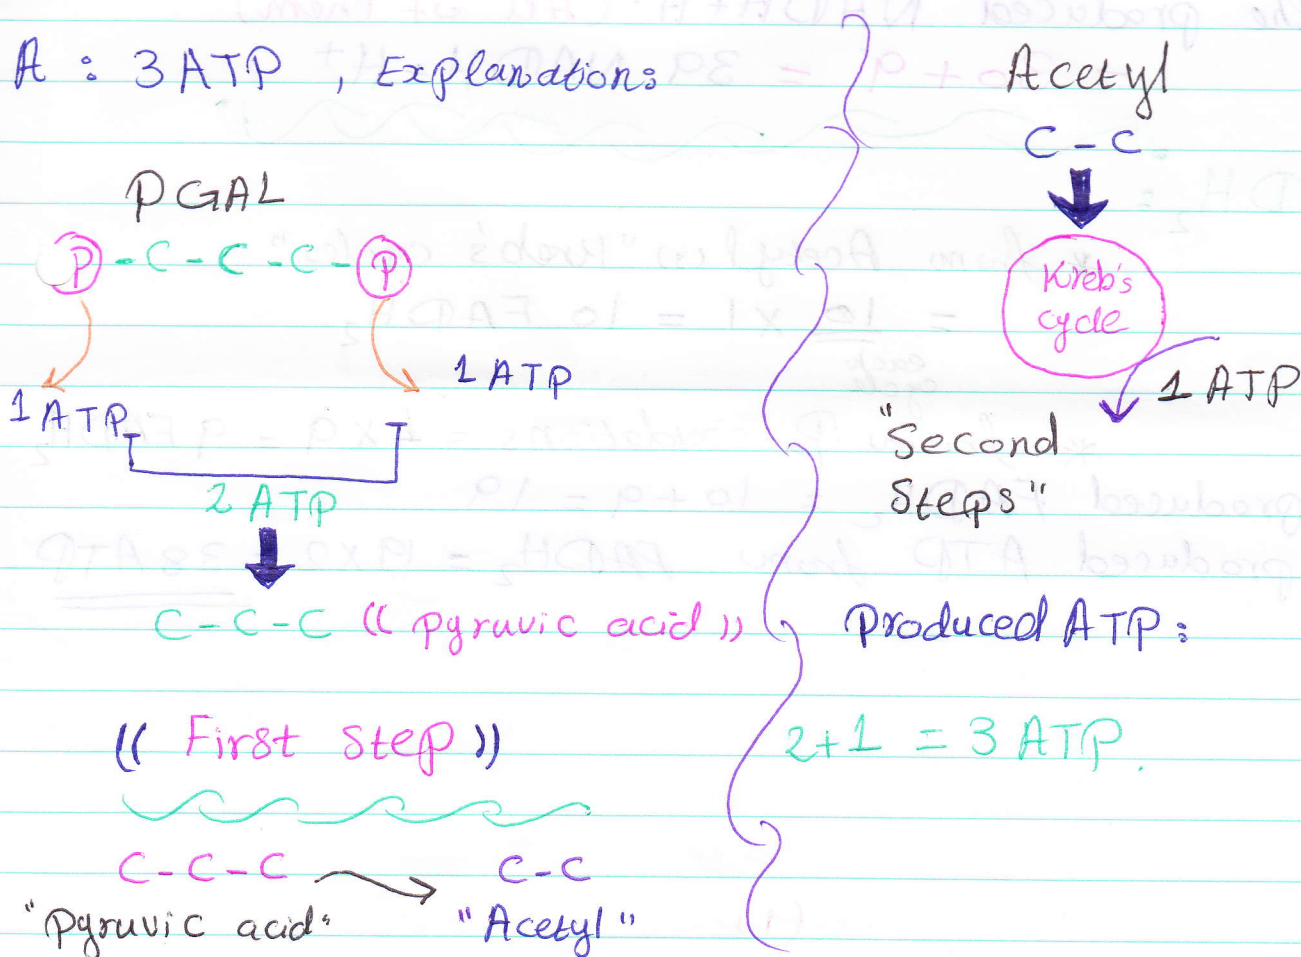 A : 3 ATP , Explanation:
PGAL
P - C - C - C - P
1 ATP
1 ATP
2 ATP
C - C - C (( pyruvic acid ))
(( First step ))
C - C - C
C - C
"pyruvic acid"
"Acetyl"
Acetyl
C - C
Kreb's
cycle
1 ATP
"Second
Steps"
produced ATP :
2+1 = 3 ATP.